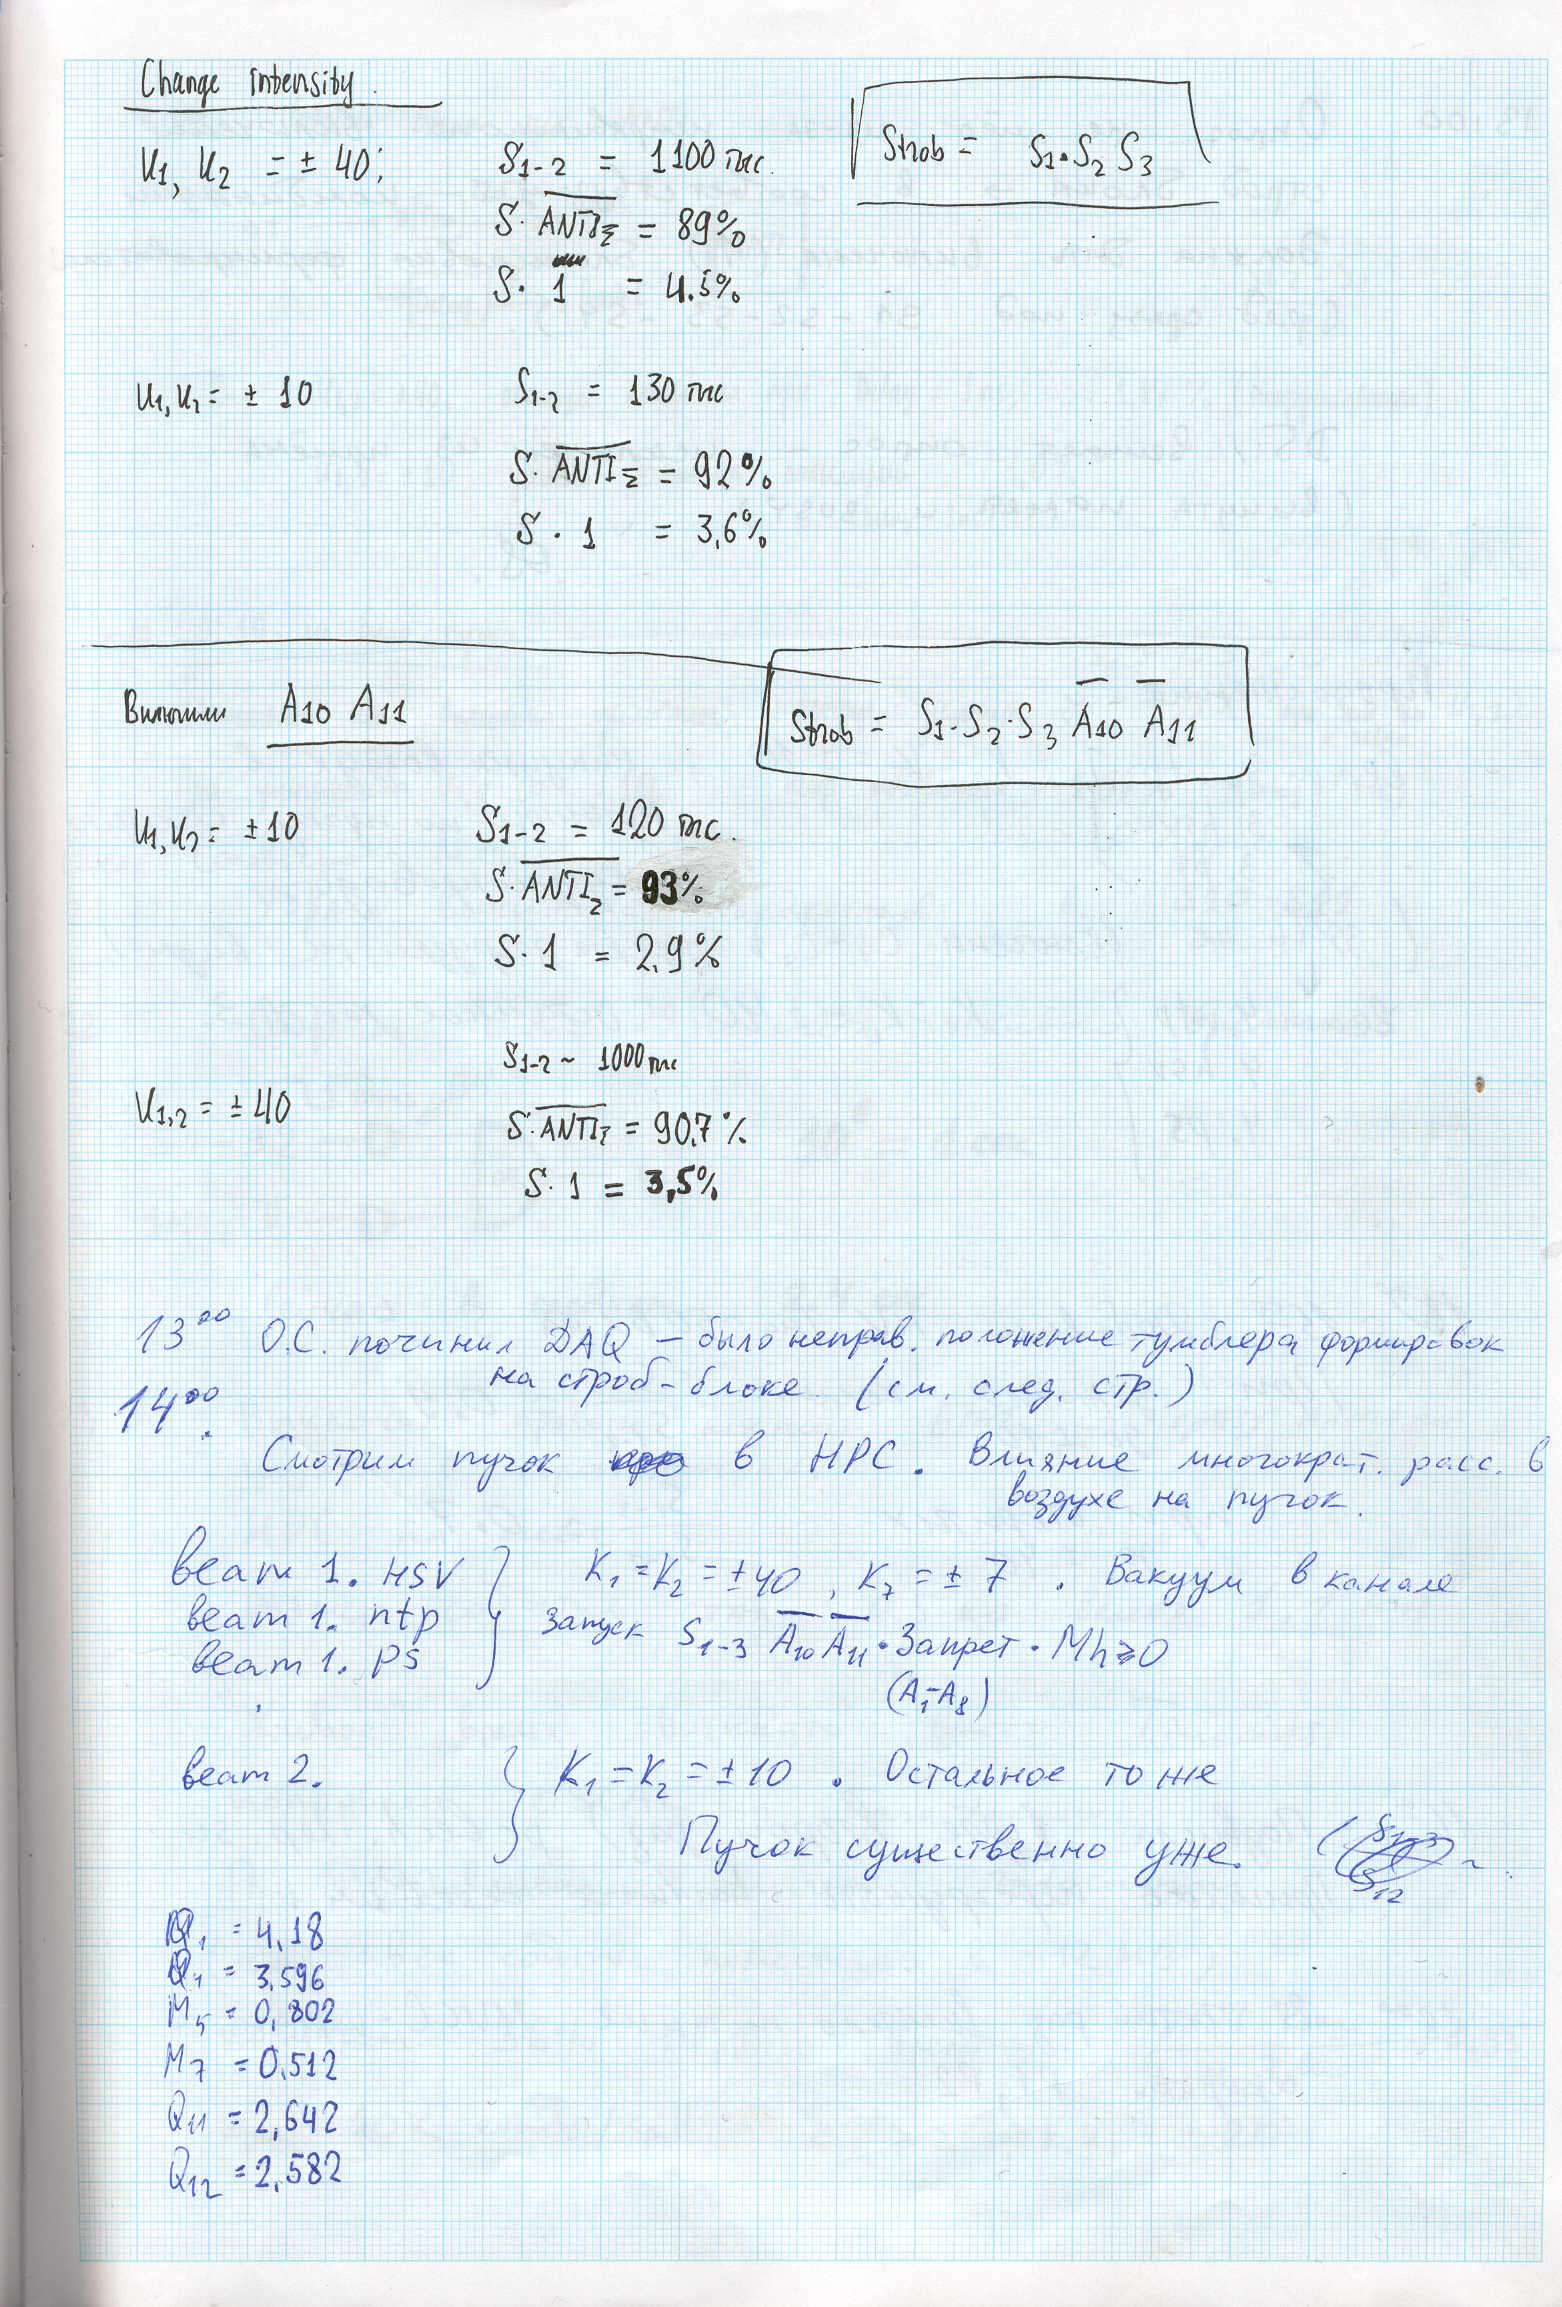 Change intensity.
K1, K2 = ± 40; S1-2 = 1100 тыс. Strob = S1·S2 S3
S· ANTIΣ = 89%
S· 1 = 4.5%
K1, K2 = ± 10 S1-2 = 130 тыс
S· ANTIΣ = 92%
S · 1 = 3,6%
Включили A10 A11 Strob = S1·S2·S3 A̅10 A̅11
K1, K2 = ±10 S1-2 = 120 тыс.
S·ANTIΣ = 93%
S·1 = 2.9%
S1-2 ~ 1000 тыс
K1,2 = ±40
S·ANTIΣ = 90.7%
S·1 = 3,5%
13⁰⁰ О.С. починил DAQ – было неправ. положение тумблера формировок
на строб-блоке. (см. след. стр.)
14⁰⁰
Смотрим пучок в НРС. Влияние многократ. расс. в
воздухе на пучок.
beam 1. HSV K1 = K2 = ±40, K7 = ± 7. Вакуум в канале
beam 1. ntp Запуск S1-3 A̅10 A̅11 · Запрет · Mh≥0
beam 1. PS (A1-A8)
beam 2. K1 = K2 = ±10. Остальное то же
Пучок существенно уже.
Q1 = 4,18
Q1 = 3.596
M5 = 0,802
M7 = 0.512
Q11 = 2,642
Q12 = 2,582